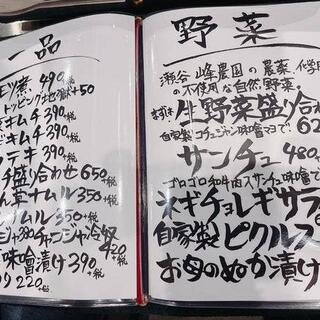 一品
モツ煮 490+税
トッピング +50
キムチ 390+税
キムチ 390+税
テキ 390+税
盛り合わせ 650+税
ナムル 350+税
ナムル 350+税
ジャ380+税 チャンジャ冷奴 420+税
味噌漬け 390+税
220+税
野菜
瀬谷 峰農園の農薬、化学
の不使用な自然野菜
まずは 生野菜盛り合わ
自家製コチュジャン味噌マヨで! 62
サンチュ 480
ゴロゴロ和牛肉入サンチュ味噌で
米ギチョレギサラ
自家製ピクルス
お母のぬか漬け